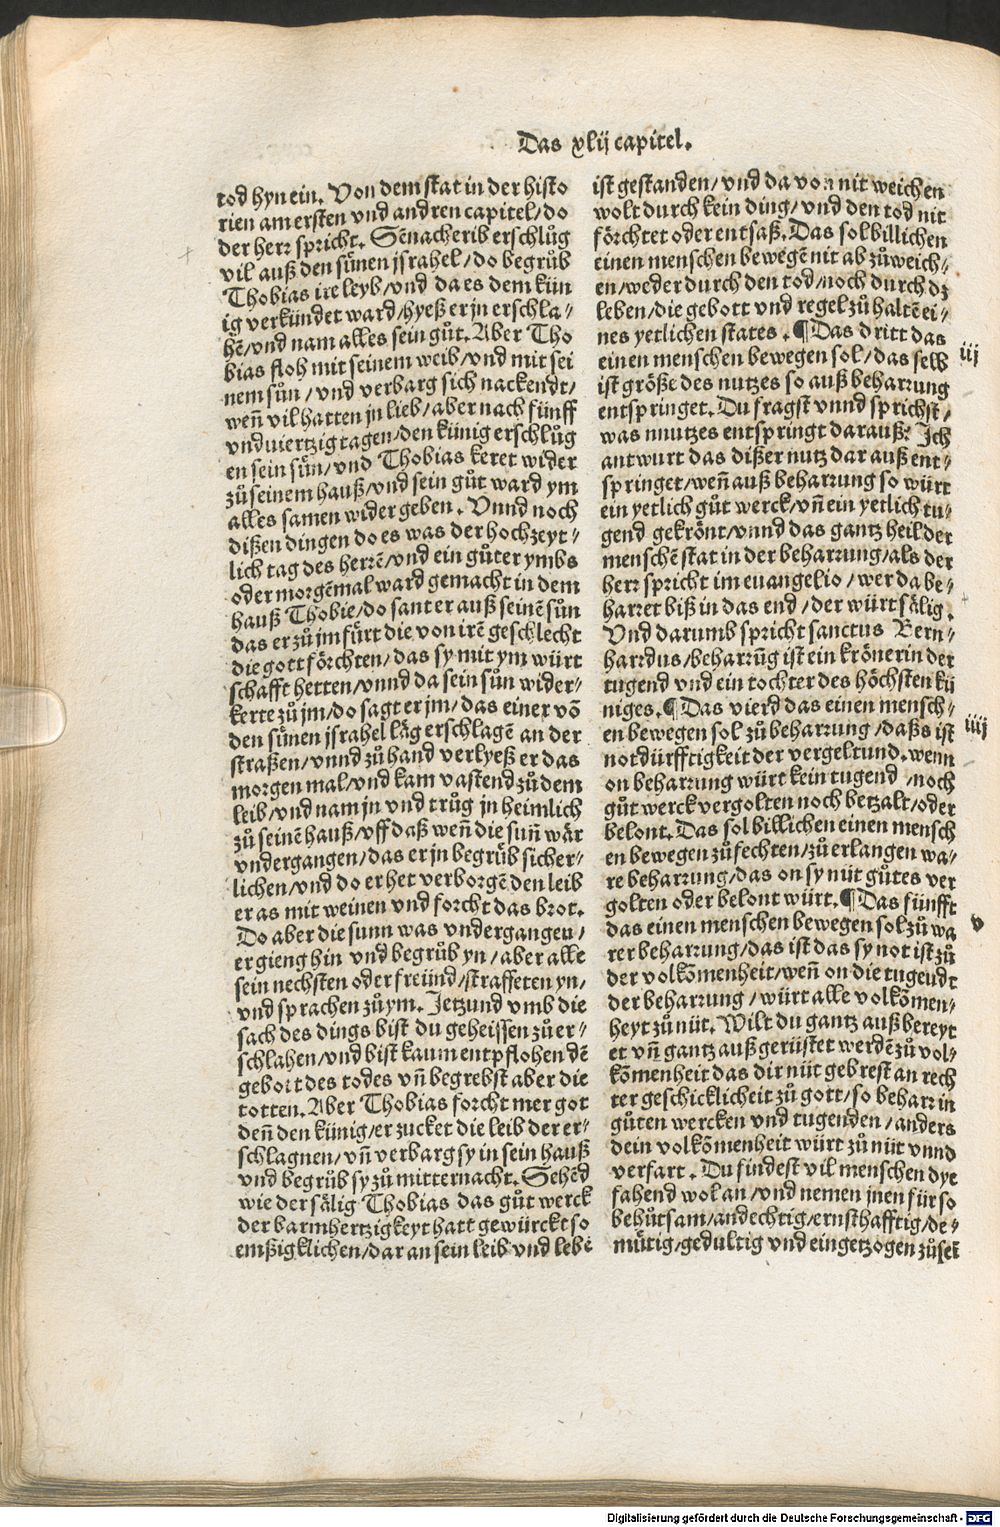 Das xlij capitel.
tod hyn ein. Von dem stat in der histo
rien am ersten vnd andren capitel/do
der herr spricht. Sēnacherib erschlůg
vil auß den sünen jsrahel/do begrůb
Thobias ire leyb/vnd da es dem kün
ig verkündet ward/hyeß er jn erschla⸗
hē/vnd nam alles sein gůt. Aber Tho
bias floh mit seinem weib/vnd mit sei
nem sůn/vnd verbarg sich nackendt/
weñ vil hatten jn lieb/aber nach fünff
vnd viertzig tagen/den künig erschlůg
en sein sün/vnd Thobias keret wider
zů seinem hauß/vnd sein gůt ward ym
alles samen wider geben. Vnnd noch
dißen dingen do es was der hochzeyt⸗
lich tag des herrē/vnd ein gůter ymbs
oder morgēmal ward gemacht in dem
hauß Thobie/do sant er auß seinē sůn
das er zů jm fürt die von irē geschlecht
die gott förchten/das sy mit ym würt
schafft hetten/vnnd da sein sůn wider⸗
kerte zů jm/do sagt er jm/das einer vō
den sünen jsrahel läg erschlagē an der
straßen/vnnd zů hand verlyeß er das
morgen mal/vnd kam vastend zů dem
leib/vnd nam jn vnd trůg jn heimlich
zů seinē hauß/vff daß weñ die suñ wär
vndergangen/das er jn begrůb sicher⸗
lichen/vnd do er het verborgē den leib
er as mit weinen vnd forcht das brot.
Do aber die sunn was vndergangen/
er gieng hin vnd begrůb yn/aber alle
sein nechsten oder freünd/straffeten yn/
vnd sprachen zů ym. Jetzund vmb die
sach des dings bist du geheissen zů er⸗
schlahen/vnd bist kaum entpflohen dē
gebott des todes vñ begrebst aber die
totten. Aber Thobias forcht mer got
deñ den künig/er zucket die leib der er⸗
schlagnen/vñ verbarg sy in sein hauß
vnd begrůb sy zů mitternacht. Sehēd
wie der sälig Thobias das gůt werck
der barmhertzigkeyt hatt gewürckt so
emßigklichen/dar an sein leib vnd lebē
ist gestanden/vnd da von nit weichen
wolt durch kein ding/vnd den tod nit
förchtet oder entsaß. Das sol billichen
einen menschen bewegē nit ab zů weich⸗
en/weder durch den tod/noch durch dz
leben/die gebott vnd regel zů haltē ei⸗
nes yetlichen states. ¶ Das dritt das
einen menschen bewegen sol/das selb
iij
ist größe des nutzes so auß beharrung
entspringet. Du fragst vnnd sprichst/
was nnutzes entspringt darauß? Ich
antwurt das dißer nutz dar auß ent⸗
springet/weñ auß beharrung so würt
ein yetlich gůt werck/vñ ein yetlich tu⸗
gend gekrönt/vnnd das gantz heil der
menschē stat in der beharrung/als der
herr spricht im euangelio/wer da be⸗
harret biß in das end/der würt sälig.
Vnd darumb spricht sanctus Bern⸗
harrdus/beharrūg ist ein krönerin der
tugend vnd ein tochter des höchsten kü
niges. ¶ Das vierd das einen mensch⸗
iiij
en bewegen sol zů beharrung/daßs ist
notdürfftigkeit der vergeltund. wenn
on beharrung würt kein tugend/noch
gůt werck vergolten noch betzalt/oder
belont. Das sol billichen einen mensch
en bewegen zů fechten/zů erlangen wa⸗
re beharrung/das on sy nüt gůtes ver
golten oder belont würt. ¶ Das fünfft
v
das einen menschen bewegen sol zů wa
rer beharrung/das ist das sy not ist zů
der volkōmenheit/weñ on die tugendt
der beharrung/würt alle volkōmen⸗
heyt zů nüt. Wilt du gantz auß bereyt
et vñ gantz auß gerüstet werdē zů vol⸗
kōmenheit das dir nüt gebrest an rech
ter geschicklicheit zů gott/so beharr in
gůten wercken vnd tugenden/anders
dein volkōmenheit würt zů nüt vnnd
verfart. Du findest vil menschen dye
fahend wol an/vnd nemen jnen für so
behůtsam/andechtig/ernsthafftig/de⸗
mütig/gedultig vnd eingetzogen zů sei
Digitalisierung gefördert durch die Deutsche Forschungsgemeinschaft - DFG